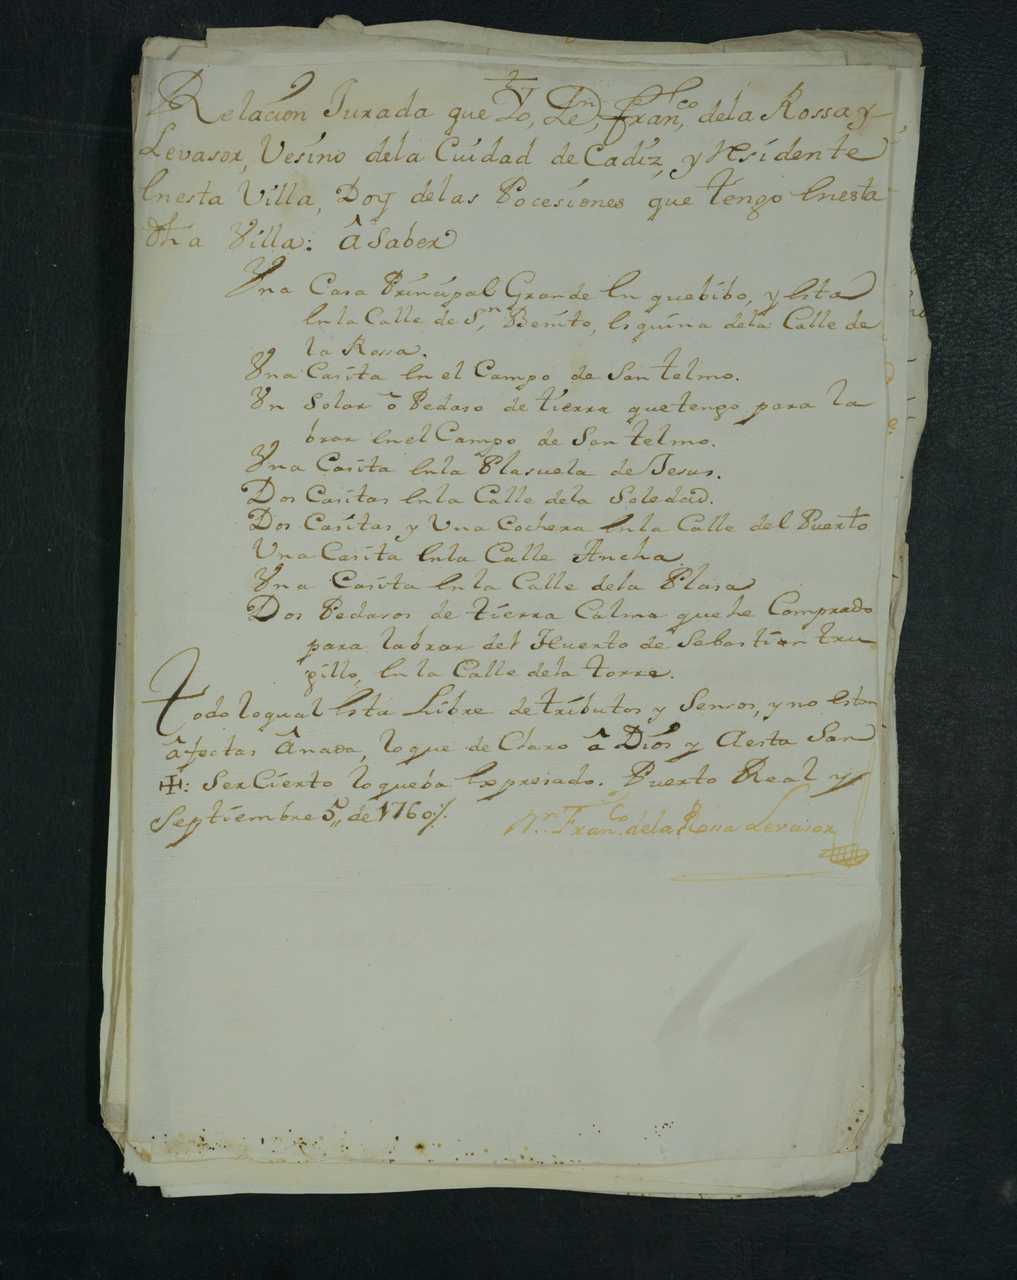 Relacion Jurada que Yo, Dn, Franco, dela Rossa y
Levasor, Vesino dela Cuidad de Cadiz, y Residente
Enesta Villa, Doy delas Pocesiones que tengo Enesta
dha Villa: â Saber
Una Casa Prinsipal Grande En quebibo, y Esta
En la Calle de Sn, Benito, Esquina dela Calle de
la Rossa.
Una Casita En el Campo de San telmo.
Un Solar ô Pedaso de tierra que tengo para la
brar En el Campo de San telmo.
Una Casita Enla Plasuela de Jesus.
Dos Casitas En la Calle dela Soledad.
Dos Casitas y Una Cochera En la Calle del Puerto
Una Casita Enla Calle Ancha
Una Casita En la Calle dela Plasa
Dos Pedasos de tierra Calma que he Comprado
para labrar del Huerto de Sebastian tru
gillo, En la Calle dela torre.
todo loqual Esta Libre de tributos y Sensos, y no estan
âfectas â nada, lo que de Claro â Dios y aesta San
✠: Ser Cierto lo queba Expresado. Puerto Real y
Septiembre 5,, de 1760 %.
Dn. Franco. dela Rosa Levasor